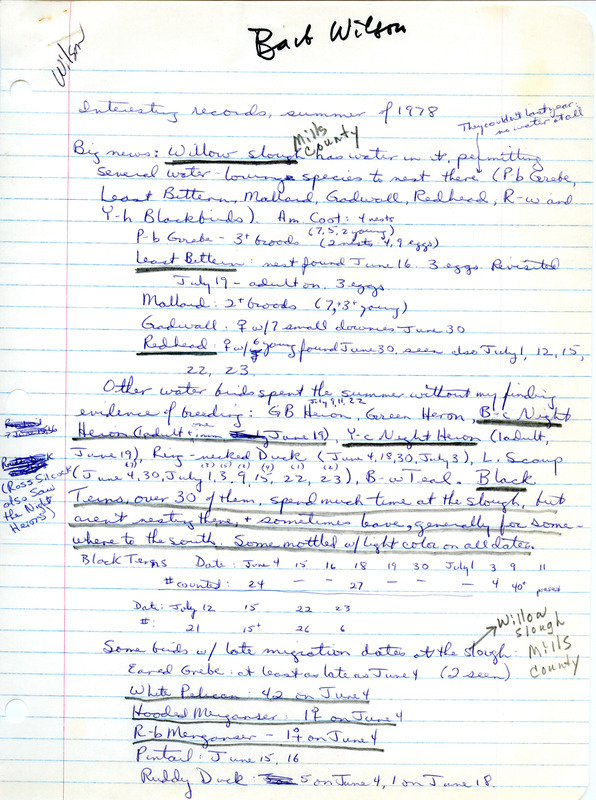 Barb Wilson
Wilson
Interesting records, summer of 1978
They couldn't last year:
no water at all
Mills
County
Big news: Willow slough has water in it, permitting
several water-loving species to nest there (P-b Grebe,
Least Bittern, Mallard, Gadwall, Redhead, R-w and
Y-h Blackbirds). Am Coot: 4 nests
(7,5,2 young)
P-b Grebe - 3+ broods (2 nests 4, 9 eggs)
Least Bittern: nest found June 16. 3 eggs. Revisited
July 19 - adult on. 3 eggs.
Mallard: 2+ broods (7,+3+ young)
Gadwall: ♀ w/7 small downies June 30
Redhead: ♀ w/6 young found June 30, seen also July 1, 12, 15,
22, 23.
Other water birds spent the summer without my finding
July 9, 11, 22
evidence of breeding: GB Heron, Green Heron, B-c Night
Heron (1 adult + imm June 19), Y-c Night Heron (1 adult,
June 19), Ring-necked Duck (June 4, 18, 30, July 3), L. Scaup
(June 4, 30, July 1, 3, 9, 15, 22, 23), B-w Teal. Black
(Ross Silcock
also saw
the Night
Herons)
Terns, over 30 of them, spend much time at the slough, but
aren't nesting there, + sometimes leave, generally for some-
where to the south. Some mottled w/ light color on all dates.
Black Terns Date: June 4 15 16 18 19 30 July 1 3 9 11
# counted: 24 — — 27 — — — 4 40+ present
Date: July 12 15 22 23
#: 21 15+ 26 6
Willow
Slough
Mills
County
Some birds w/ late migration dates at the slough:
Eared Grebe: at least as late as June 4 (2 seen)
White Pelican: 42 on June 4
Hooded Merganser: 1♀ on June 4
R-b Merganser - 1♀ on June 4
Pintail: June 15, 16
Ruddy Duck: 5 on June 4, 1 on June 18.